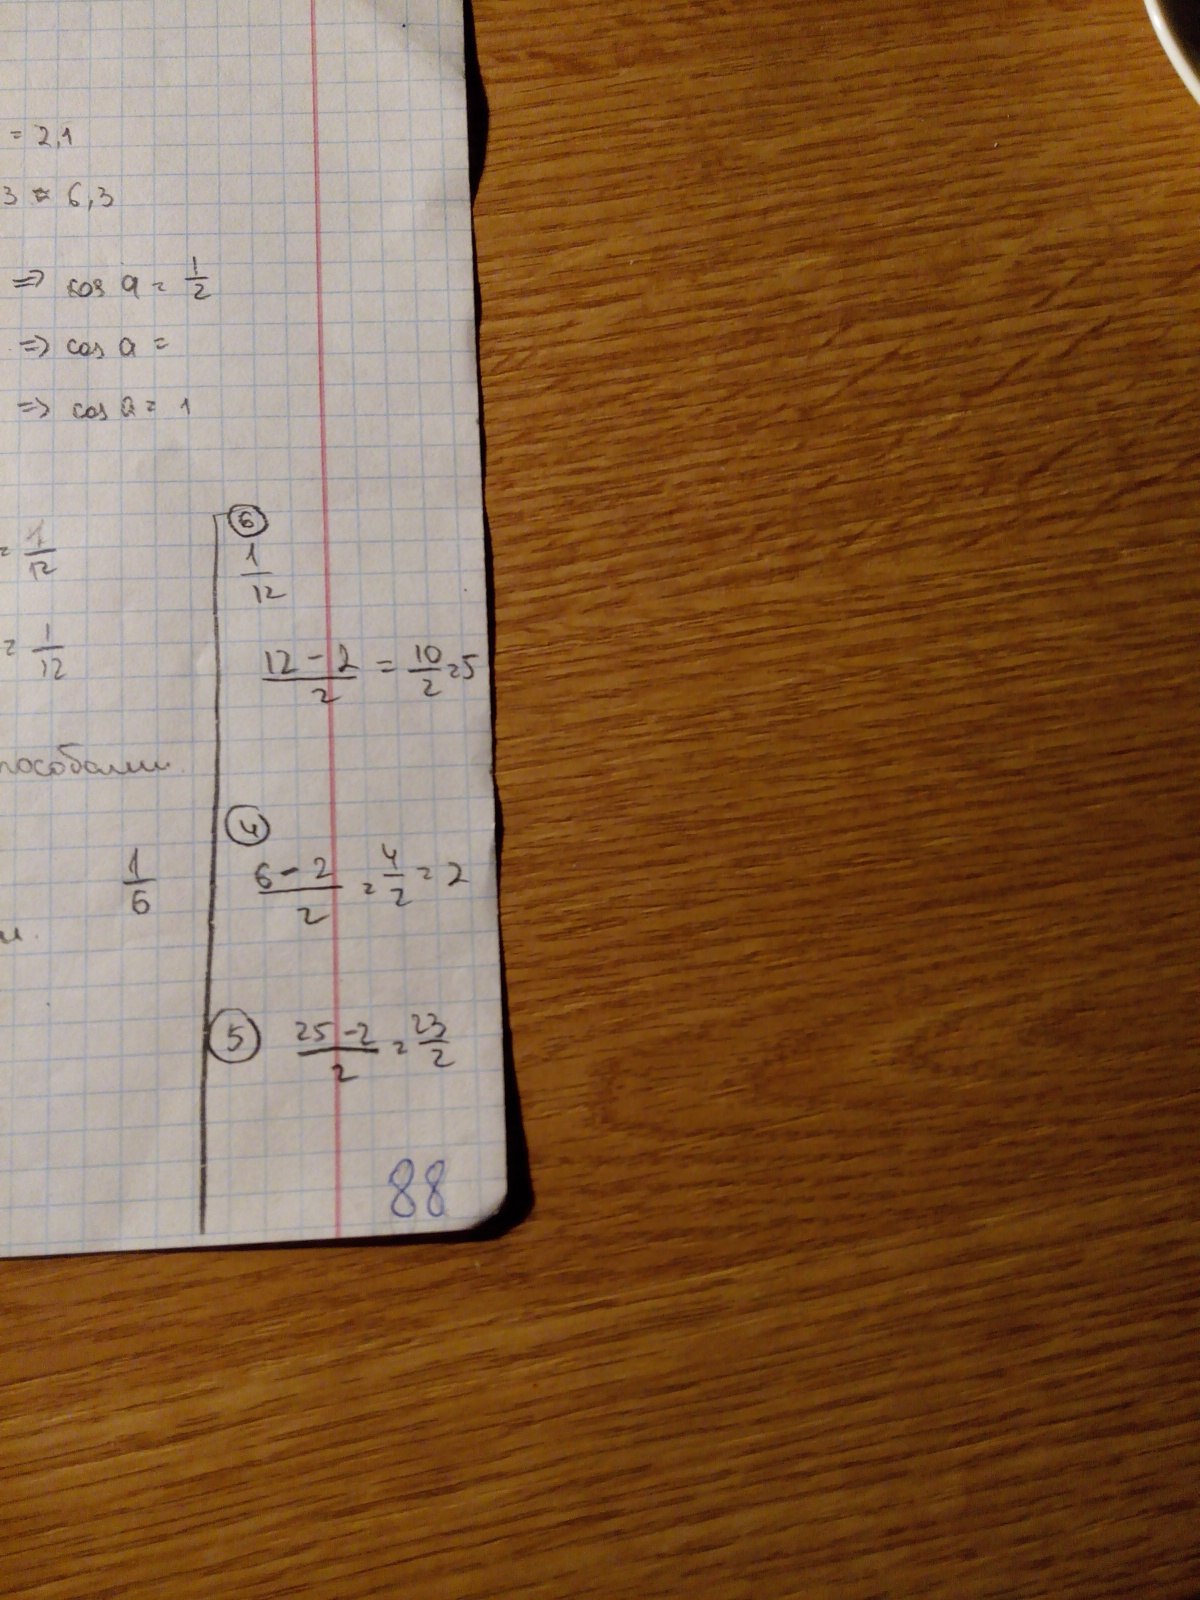 = 2,1
3 = 6,3
=> cos a = 1/2
=> cos a =
=> cos a = 1
= 1/12
= 1/12
пособами
1/6
и.
6
1/12
(12 - 2)/2 = 10/2 = 5
4
(6 - 2)/2 = 4/2 = 2
5 (25 - 2)/2 = 23/2
88